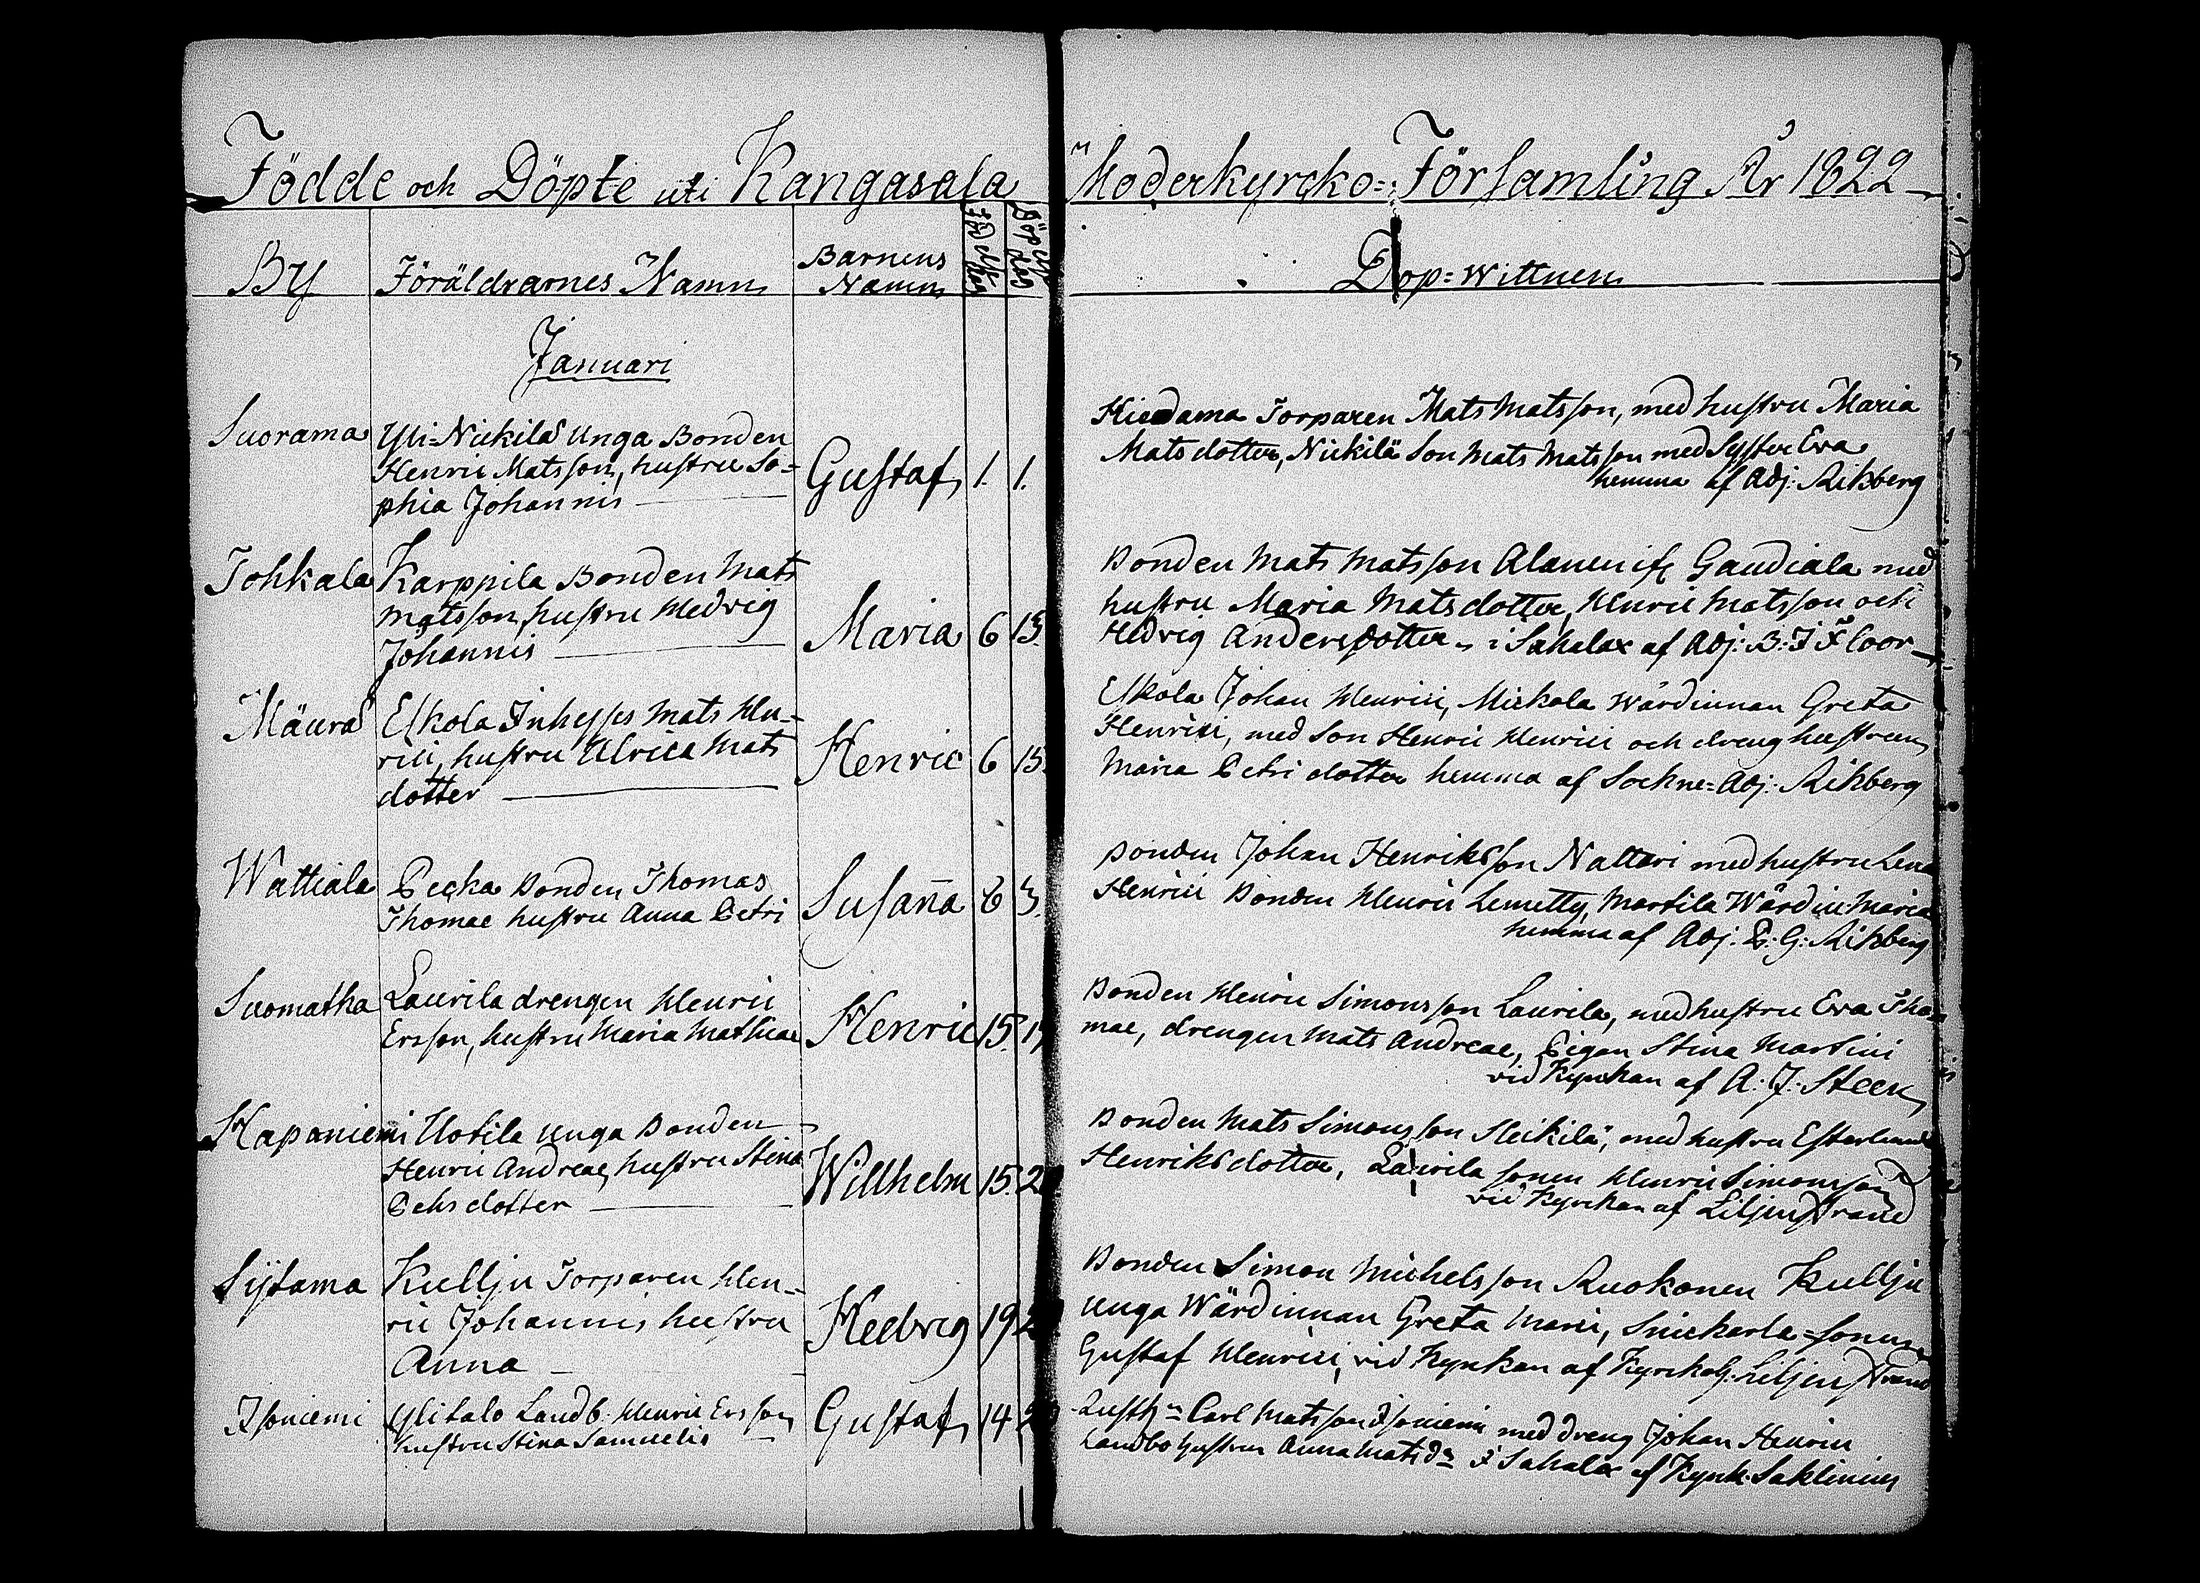 Födde och Döpte uti Kangasala Moderkyrcko=Församling År 1822
By Föräldrarnes Namn Barnens Namn
Dop=Wittnen
Januari
Suorama Yli=Nickilä Unga Bonden
Henric Matsson, hustru So=
phia Johannis
Gustaf 1. 1.
Torparen Mats Matsson, med hustru Maria
Matsdotter, Nickilä Son Mats Matsson med Syster Eva
hemma af Adj: Rikberg
Tohkala Karppila Bonden Mats
Matsson, hustru Hedvig
Johannis
Maria 6 13.
Bonden Mats Matsson Alanen if Gaudiala med
hustru Maria Matsdotter, Henric Matsson och
Hedvig Andersdotter i Sahalax af Adj: B: J
Mäura Eskola Inhyses Mats Hen=
rici, hustru Ulrica Mats
dotter
Henric 6 15.
Eskola Johan Henrici, Mickola Wärdinnan Greta
Henrici, med Son Henric Henrici och dreng hustrun
Maria Petri dotter hemma af Sockne=Adj: Rikberg
Wattiala Pecka Bonden Thomas
Thomae hustru Anna Petri
Susaña 6
Bonden Johan Henriksson Nattari med hustru Lena
Henrici Bonden Henric Lemetty, Martila Wärdin Maria
hemma af Adj: G: Rikberg
Suomatka Laurila drengen Henric
Ersson, hustru Maria Mathiae
Henric 15.
Bonden Henric Simonsson Laurila, med hustru Eva Tho
mae, drengen Mats Andreae, Pigan Stina Martini
vid Kyrckan af A: J: Steen
Haponiemi Uotila Unga Bonden
Henric Andreae, hustru Stina
Pehrsdotter
Willhelm 15.
Bonden Mats Simonsson Heikilä, med hustru
Henriksdotter, Laurila sonen Henric Simonsson
vid Kyrckan af Liljenstrand
Sijtama Kullju Torparen Hen=
ric Johannis hustru
Anna
Hedvig 19
Bonden Simon Michelsson Ruokonen Kullju
unga Wärdinnan Greta Marci, Snickarla=sonen
Gustaf Henrici, vid Kyrckan af Liljenstrand
Isoniemi Ylitalo Landb. Henric Ersson
hustru Stina Samuelis
Gustaf 14
Carl Matsson Isoniemi med dreng Johan Henrici
Landbohustrun Anna Matsdr i Sahalax af